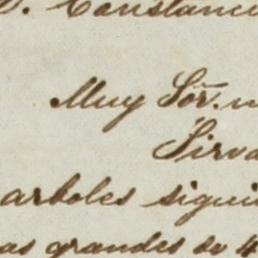 D. Constanci
Muy Sőr. m
Sirva
arboles sigui
as grandes de 4